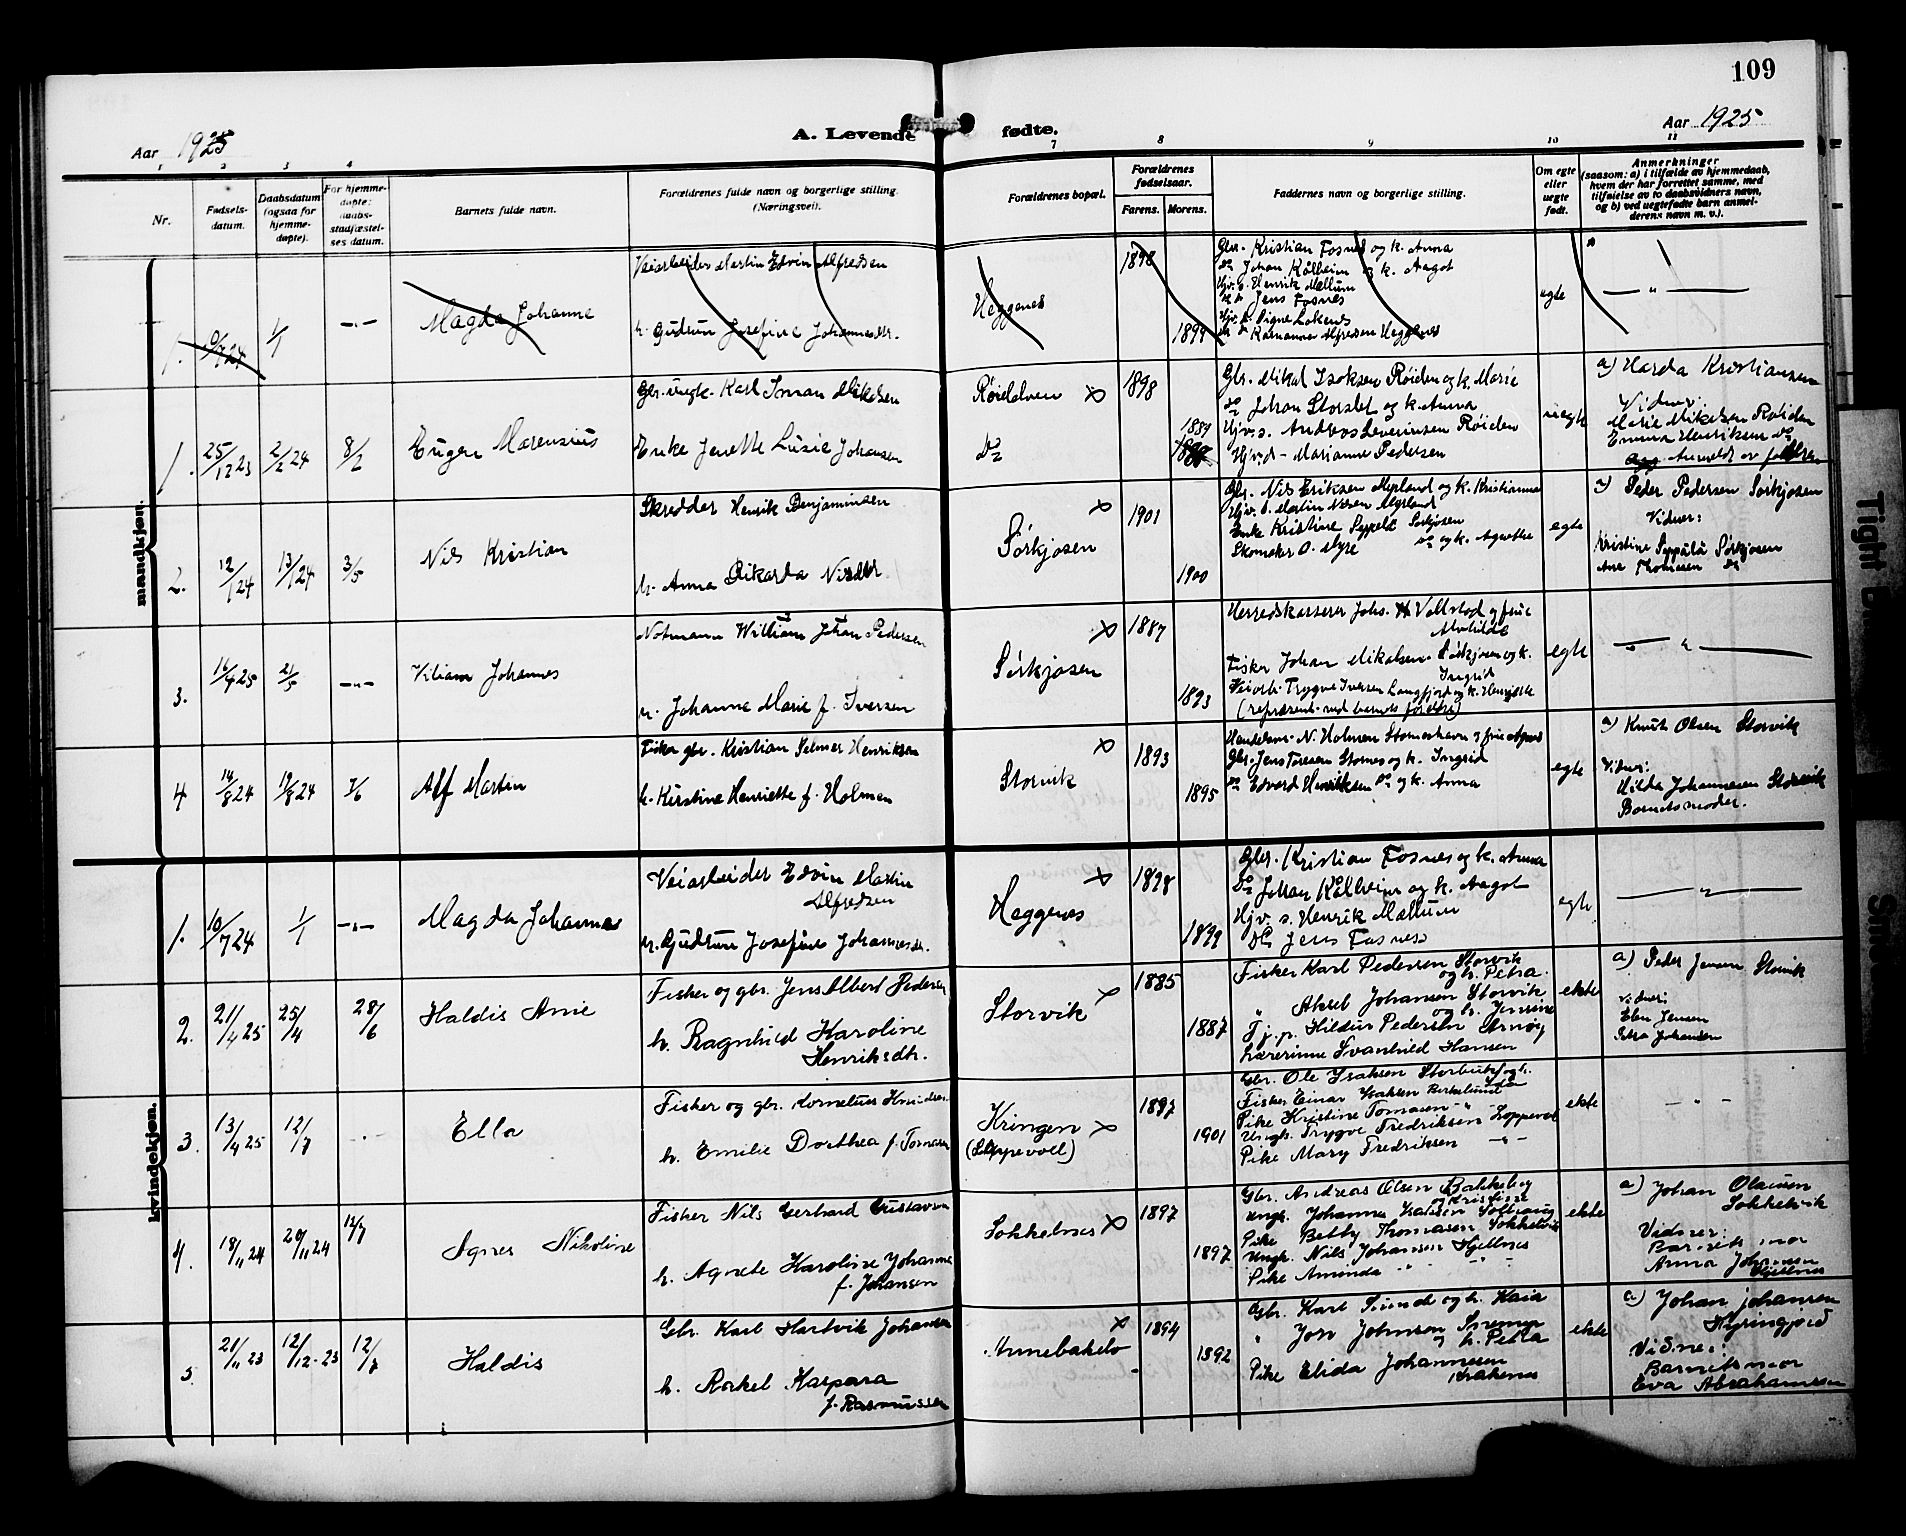 109
Aar 1925
A. Levende fødte.
Aar 1925
1 2 3 4 7 8 9 10 11
Nr.
Fødsels-datum.
Daabsdatum (ogsaa for hjemme-døpte).
For hjemme-døpte: daabs-stadfæstel-ses datum.
Barnets fulde navn.
Forældrenes fulde navn og borgerlige stilling. (Næringsvei).
Forældrenes bopæl.
Forældrenes fødselsaar.
Farens. Morens.
Faddernes navn og borgerlige stilling.
Om egte eller uegte født.
Anmerkninger
(saasom: a) i tilfælde av hjemmedaab,
hvem der har forrettet samme, med
tilføielse av to daabsvidners navn,
og b) ved uegtefødte barn anmel-
derens navn m. v.).
mandkjøn.
1. 1/1 -"- Magda Johanne
Veiarbeider Martin Edvin Alfredsen
h. Gudrun Josefine Johannesdtr.
Heggenes
1898
1899
Gbr. Kristian Fosnes og k. Anna
Do Johan Kålheim og k. Aagot
Hjv. s. Henrik Mællum
Jens Fosnes
Hjv. d. Signe Løkenes
Alfredsen Heggenes
egte
— " —
1. 25/12 23 2/2 24 8/2 Eugen Marensius
Gbr. ungk. Karl Johan Mikalsen
Enke Jenette Lusie Johansen
Røidelven x
Do
1898
1889
Gbr. Mikal Isaksen Røiden og k. Marie
Do Johan Storslet og k. Anna
Hjv. s. Andreas Severinsen Røiden
Hjv. d - Marianne Pedersen
uegte
a) Harda Kristiansen
Vidner:
Marie Mikalsen Røiden
Emma Henriksen Do
Anmeldt av
2. 12/1 24 13/1 24 3/5 Nils Kristian
Skrædder Henrik Benjaminsen
h. Anna Rikarda Nilsdtr
Sørkjosen x
1901
1900
Gbr. Nils Eriksen Myrland og k. Kristianna
Hjv. s. Martin Nilsen Myrland
Enke Kristine Seppelä Sørkjosen
Skomaker O. Myre Do og k. Agnethe
egte
a) Peder Pedersen Sørkjosen
Vidner:
Kristine Seppälä Sørkjosen
Ane Thomesen Do
3. 16/4 25 21/5 -"- Viliam Johannes
Notmann William Johan Pedersen
h. Johanne Marie f. Iversen
Sørkjosen x
1887
1893
Herredskasserer Johs. H Vollstad og frue
Matilde
Fisker Johan Mikalsen Sørkjosen og k.
Ingrid
Veiarb. Trygve Iversen Langfjord og k. Henriette
(repræsent. ved barnets forældre)
egte
— " —
4 14/8 24 19/8 24 1/6 Alf Martin
Fisker gbr. Kristian Selmer Henriksen
h. Kirstine Henriette f. Holmen
Storvik x
1893
1895
Handelsm. N. Holmen Storneshavn og frue Agnes
Gbr. Jens Turesen Stornes og k. Ingrid
Do Edvard Henriksen Do og k. Anna
egte
a) Knut Olsen Storvik
Vidner:
Hilda Johannesen Storvik
Barnets moder.
kvindekjøn.
1. 10/7 24 1/1 -"- Magda Johanne
Veiarbeider Edvin Martin
Alfredsen
h. Gudrun Josefine Johannesdr.
Heggenes x
1898
1899
Gbr. Kristian Fosnes og k. Anna
Do Johan Kålheim og k. Aagot
Hjv. s. Henrik Mællum
Do Jens Fosnes
egte
— " —
2. 21/4 25 25/4 28/6 Haldis Anie
Fisker og gbr. Jens Albert Pedersen
h. Ragnhild Karoline
Henriksdtr.
Storvik x
1885
1887
Fisker Karl Pedersen Storvik
og h. Petra
" Aksel Johansen Storvik
og h. Jensine
Tj. p. Hildur Pedersen Arnøy
Lærerinne Svanhild Hansen
ekte
a) Peder Jensen Storvik
Vidner:
Elen Jensen
Petra Johansen
3. 13/4 25 12/7 -"- Ella
Fisker og gbr. Kornelius Knudsen
h. Emilie Dorthea f. Tomasen
Kringen x
(Loppevoll)
1897
1901
Gbr. Ole Isaksen Storbukt og h.
Fisker Einar Isaksen Birkelund
Pike Kristine Tomasen -"-
Ungk. Trygve Fredriksen Loppevol
Pike Mary Fredriksen -"-
ekte
- " -
4. 18/11 24 20/11 24 12/7 Agnes Nikoline
Fisker Nils Gerhard Gustavsen
h. Agnete Karoline Johanna
f. Johansen
Sokkelnes x
1897
1897
Gbr. Andreas Olsen Bakkeby
og Kristine
Ungk. Johannes Isaksen
Pike Betty Thomasen Sokkelvik
Ungk. Nils Johansen Hjellnes
Pike Aminda " " " "
ekte
a) Johan Olausen
Sokkelvik
Vidner:
Barnets mor
Anna Johansen
Hjellnes
5. 21/11 23 12/12-23 12/7 Haldis
Gbr. Karl Hartvik Johansen
h. Rakel Kaspara
f. Rasmussen
Annebakelv x
1894
1892
Gbr. Karl Sund og h. Kaia
" Jon Johnsen
og h. Petra
Pike Elida Johannesen
Krakenes
ekte
a) Johan Johansen
Vidner:
Barnets mor
Eva Abrahamsen
Tight